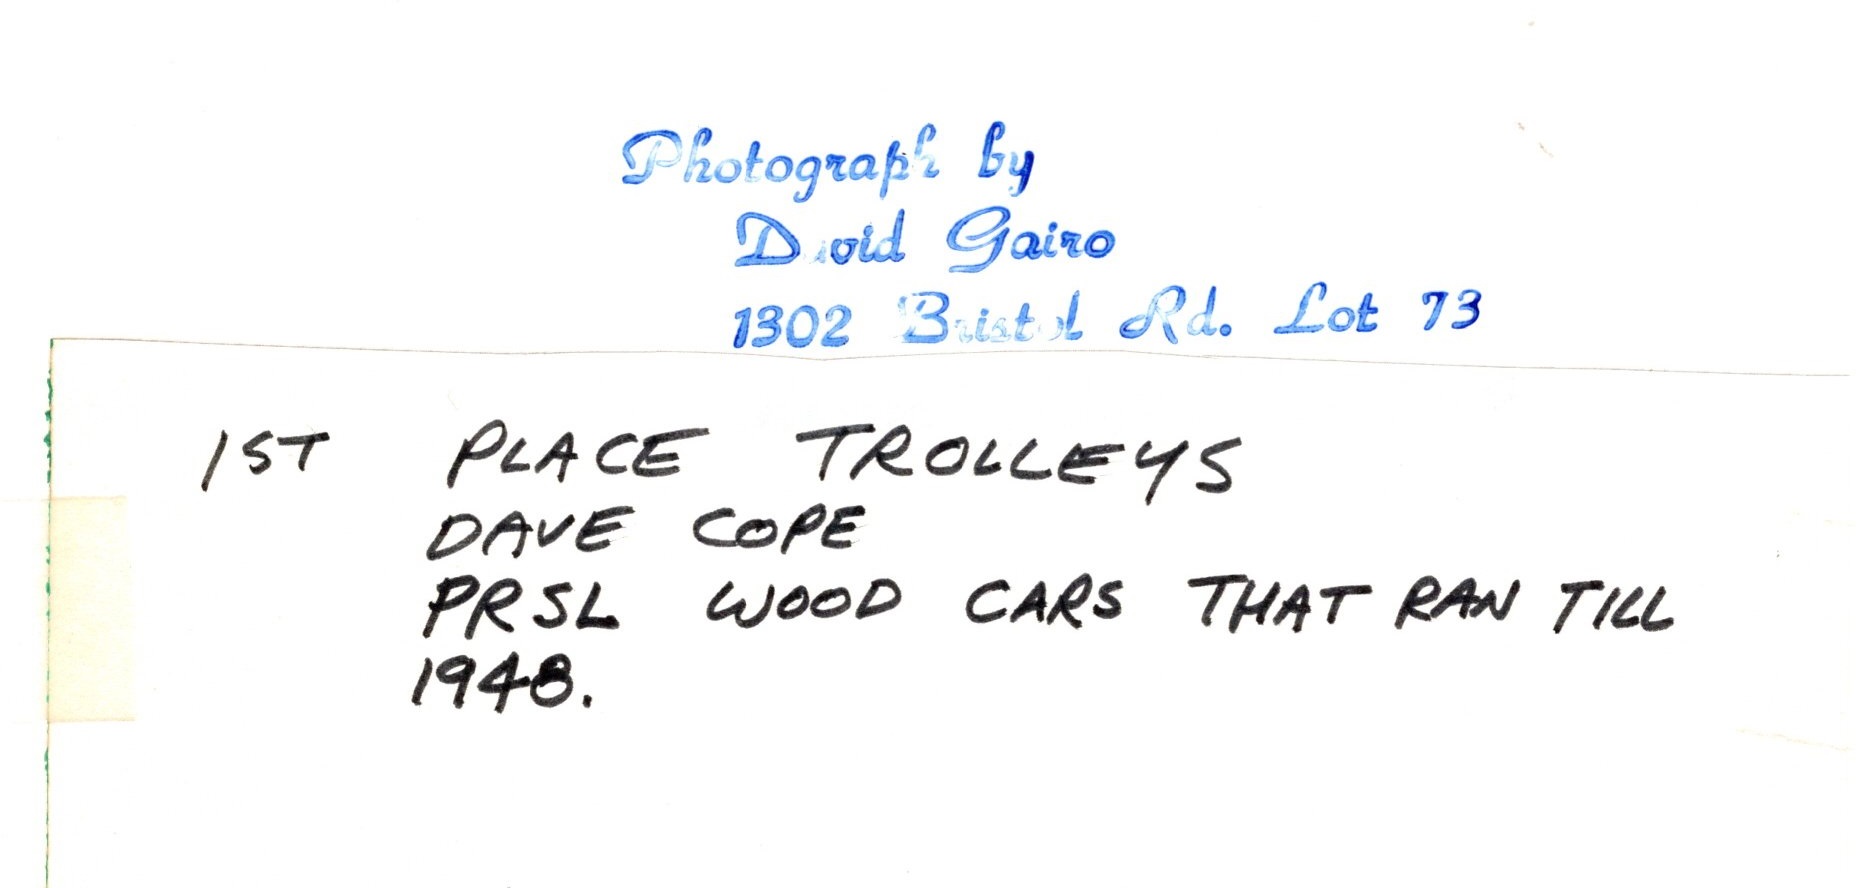 Photograph by
David Gairo
1302 Bristol Rd. Lot 73
1ST PLACE TROLLEYS
DAVE COPE
PRSL WOOD CARS THAT RAN TILL
1948.